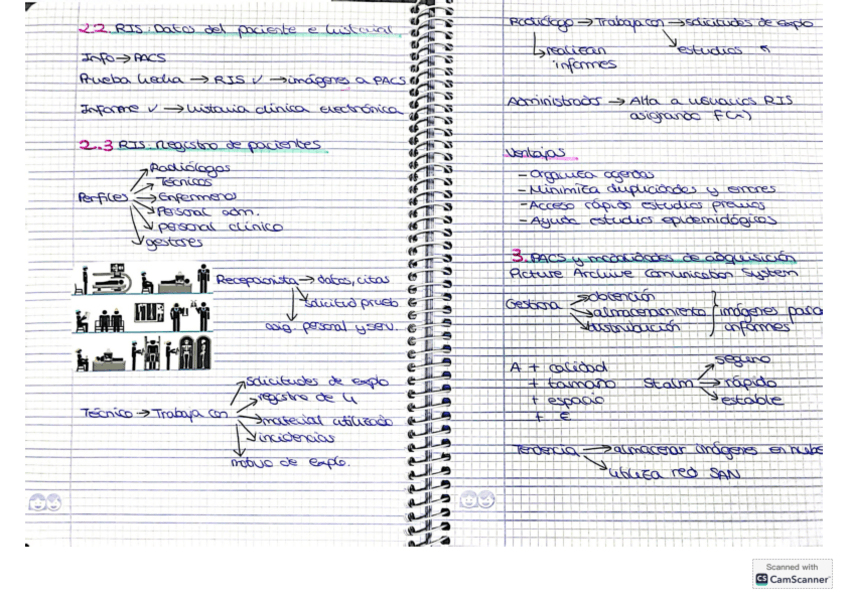 2.2. RIS: Datos del paciente e historial.
Info → PACS
Prueba hecha → RIS ✓ → imágenes a PACS
Informe ✓ → historia clínica electrónica
2.3 RIS: Registro de pacientes
Perfiles → Radiólogos
→ Técnicos
→ Enfermeros
→ Personal adm.
→ personal clínico
→ gestores
Recepcionista → datos, citas
→ solicitud prueb
→ asig. personal y serv.
Técnico → Trabaja con → solicitudes de explo
→ registro de
→ material utilizado
→ incidencias
→ motivo de explo.
Radiólogo → Trabaja con → solicitudes de explo
→ realizan informes
→ estudios
Administrador → Alta a usuarios RIS
asignando F(x)
Ventajas
- Organiza agendas
- Minimiza duplicidades y errores
- Acceso rápido estudios previos
- Ayuda estudios epidemiológicos
3. PACS y modalidades de adquisición
Picture Archive Comunication System
Gestiona → obtención
→ almacenamiento } imágenes para
→ distribución informes
A + calidad
+ tamaño
+ espacio
+ €
St alm → seguro
→ rápido
→ estable
Tendencia → almacenar imágenes en nube
→ utiliza red SAN
Scanned with
CS CamScanner